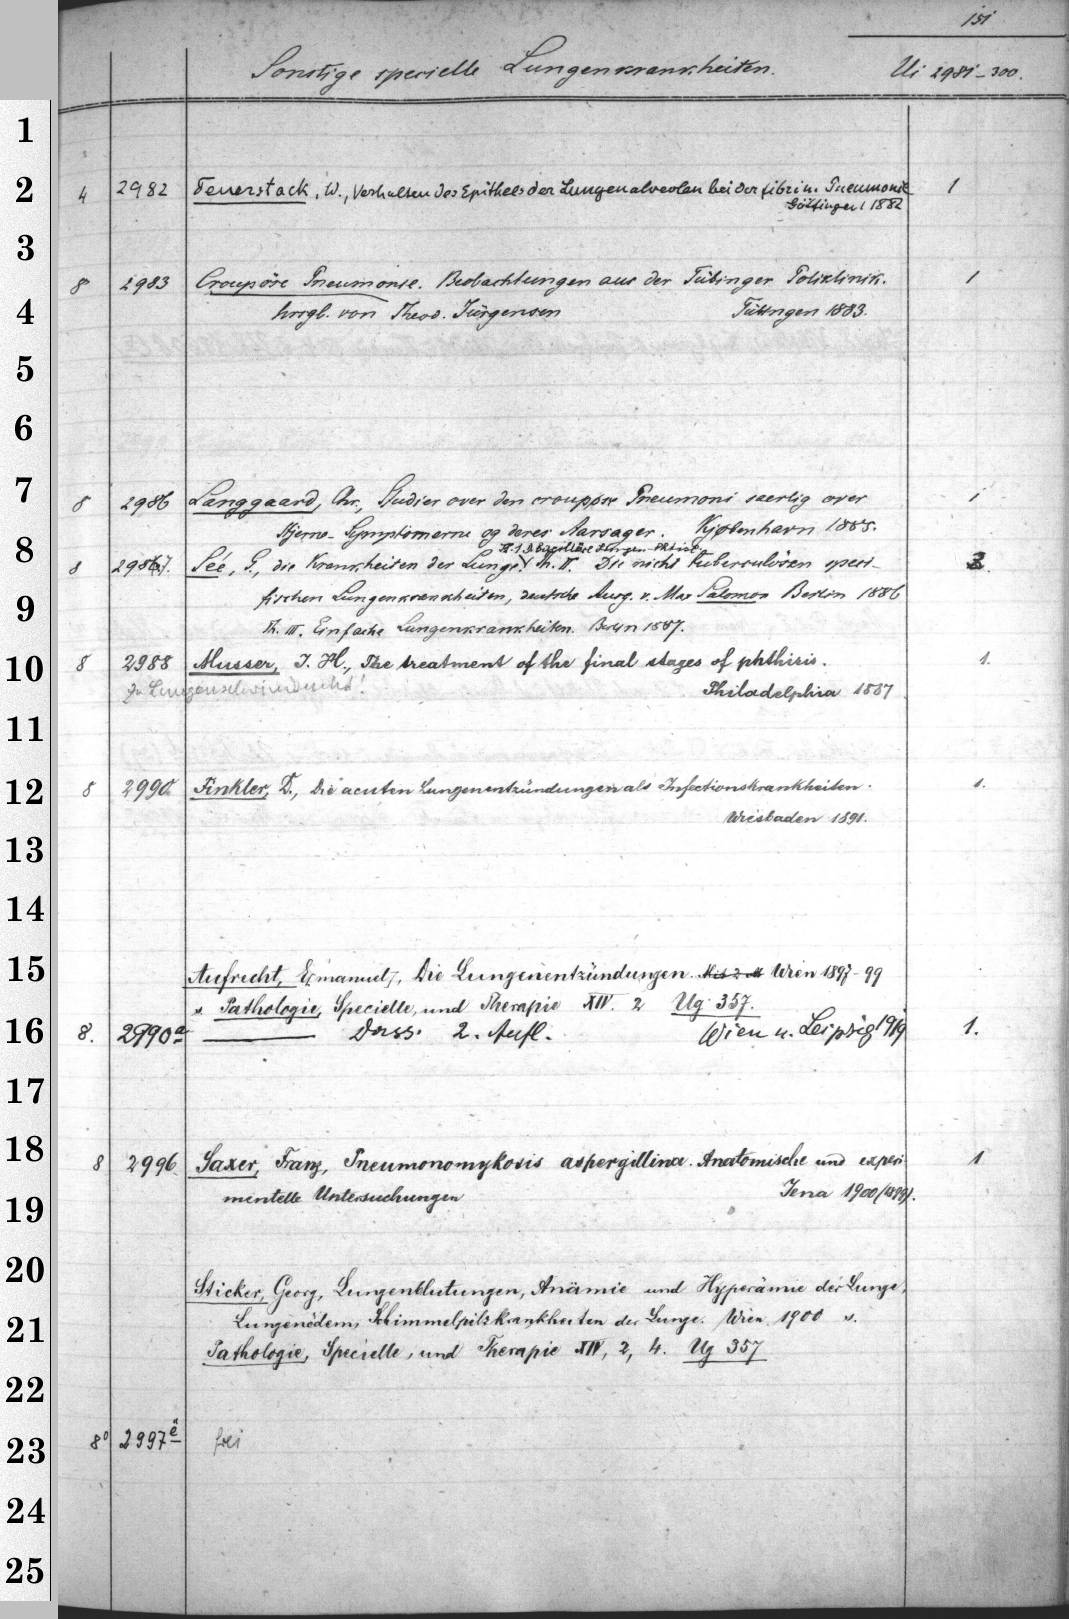 151
Sonstige specielle Lungenkrankheiten. Ui 2981-300.
1
2
4 2982 Feuerstack, W., Verhalten des Epithels der Lungenalveolen bei der fibrin. Pneumonie 1
Göttingen 1882
3
8 2983 Croupöse Pneumonie. Beobachtungen aus der Tübinger Poliklinik. 1
4
hrsgb. von Theod. Jürgensen Tübingen 1883.
5
6
7
8 2986 Langgaard, Chr., Studier over den croupøse Pneumoni særlig over 1
Hjerne-Symptomerne og deres Aarsager. Kjøbenhavn 1885.
8
8 Sée, G., die Krankheiten der Lunge. Th. II. Die nicht tuberculösen speci-
9
fischen Lungenkrankheiten, deutsche Ausg. v. Max Salomon Berlin 1886
Th. III. Einfache Lungenkrankheiten. Berlin 1887.
10
8 2988 Musser, J. H., The treatment of the final stages of phthisis. 1.
Lungenschwindsucht! Philadelphia 1887
11
12
8 2990 Finkler, D., Die acuten Lungenentzündungen als Infectionskrankheiten. 1.
Wiesbaden 1891.
13
14
15
Aufrecht, E(manuel), Die Lungenentzündungen. Wien 1897-99
s. Pathologie, Specielle, und Therapie XIV. 2 Ug 357.
16
8. 2990a — Dass. 2. Aufl. Wien u. Leipzig 1919 1.
17
18
8 2996 Saxer, Franz, Pneumonomykosis aspergillina. Anatomische und experi- 1
19
mentelle Untersuchungen Jena 1900 (1899).
20
Sticker, Georg, Lungenblutungen, Anämie und Hyperämie der Lunge,
21
Lungenödem, Schimmelpilzkrankheiten der Lunge. Wien 1900 s.
Pathologie, Specielle, und Therapie XIV, 2, 4. Ug 357
22
23
8° 2997 frei
24
25